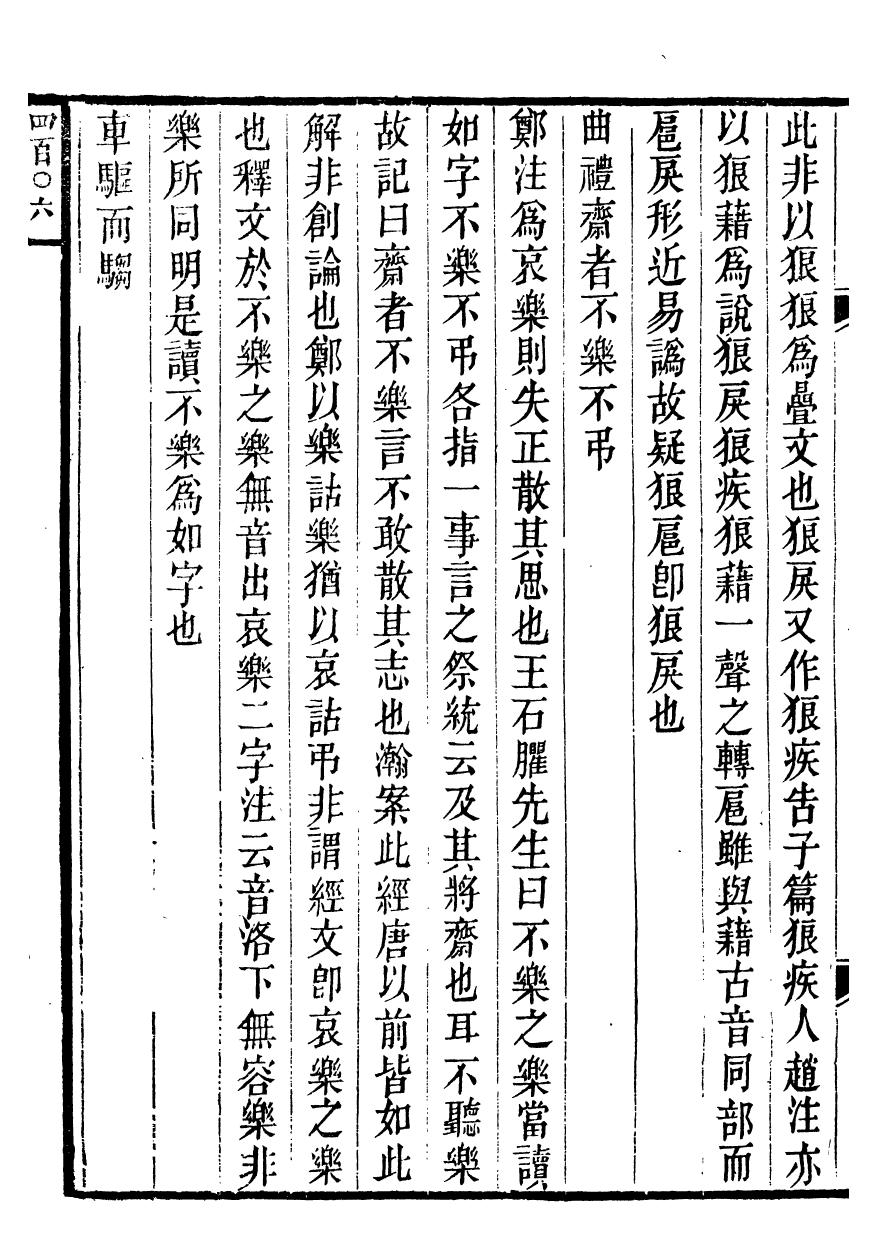 此非以狼狼爲疊文也狼戾又作狼疾告子篇狼疾人趙注亦
以狼藉爲說狼戾狼疾狼藉一聲之轉扈雖與藉古音同部而
扈戾形近易譌故疑狼扈卽狼戾也
曲禮齋者不樂不弔
鄭注爲哀樂則失正散其思也王石臞先生曰不樂之樂當讀
如字不樂不弔各指一事言之祭統云及其將齋也耳不聽樂
故記曰齋者不樂言不敢散其志也瀚案此經唐以前皆如此
解非創論也鄭以樂詁樂猶以哀詁弔非謂經文卽哀樂之樂
也釋文於不樂之樂無音出哀樂二字注云音洛下無容樂非
樂所同明是讀不樂爲如字也
車驅而騶
四百〇六